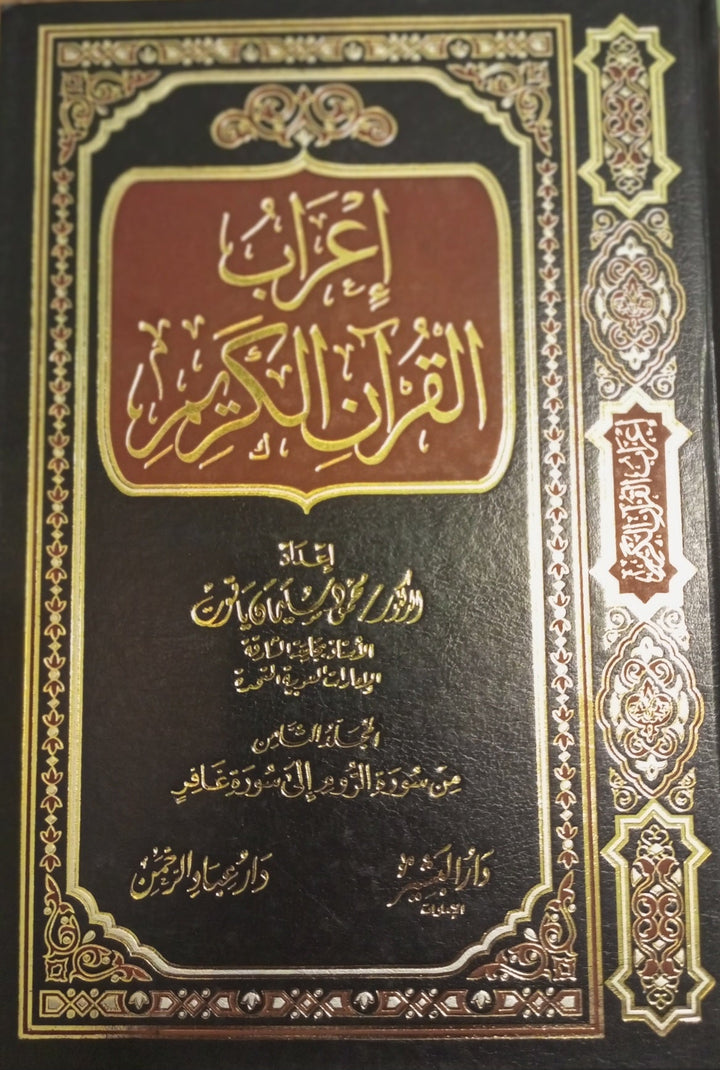 إِعْرَابُ
القُرْآنِ الكَرِيمِ
إعداد
الدكتور/ محمود سليمان ياقوت
الأستاذ بجامعة الشارقة
الإمارات العربية المتحدة
المجلد الثامن
مِن سُورَة الرُّوم إلى سُورَة غَافِر
دَارُ البَشِير
الإمارات
دَار عِبَاد الرَّحْمٰن
إعراب القرآن الكريم